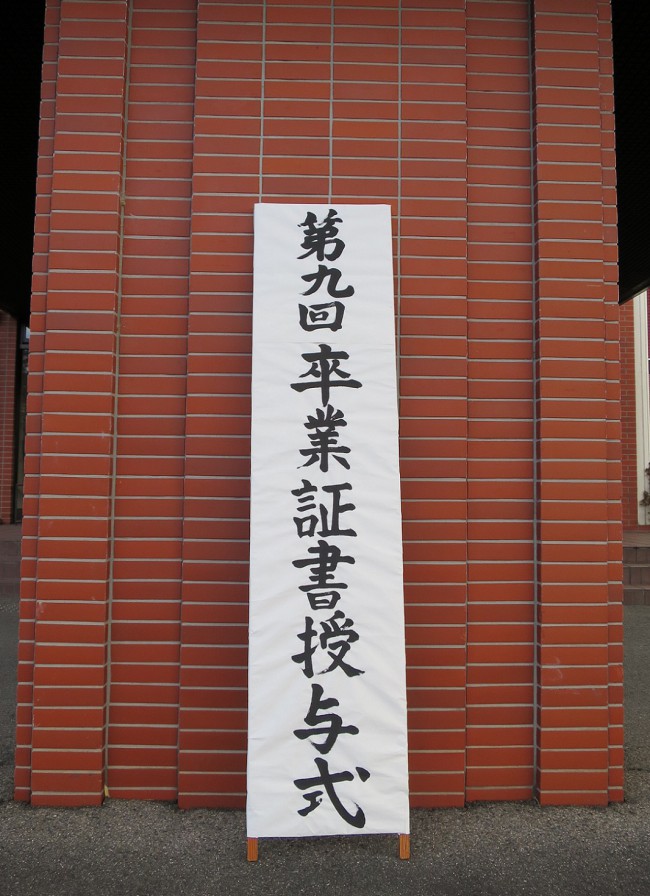 第九回卒業証書授与式